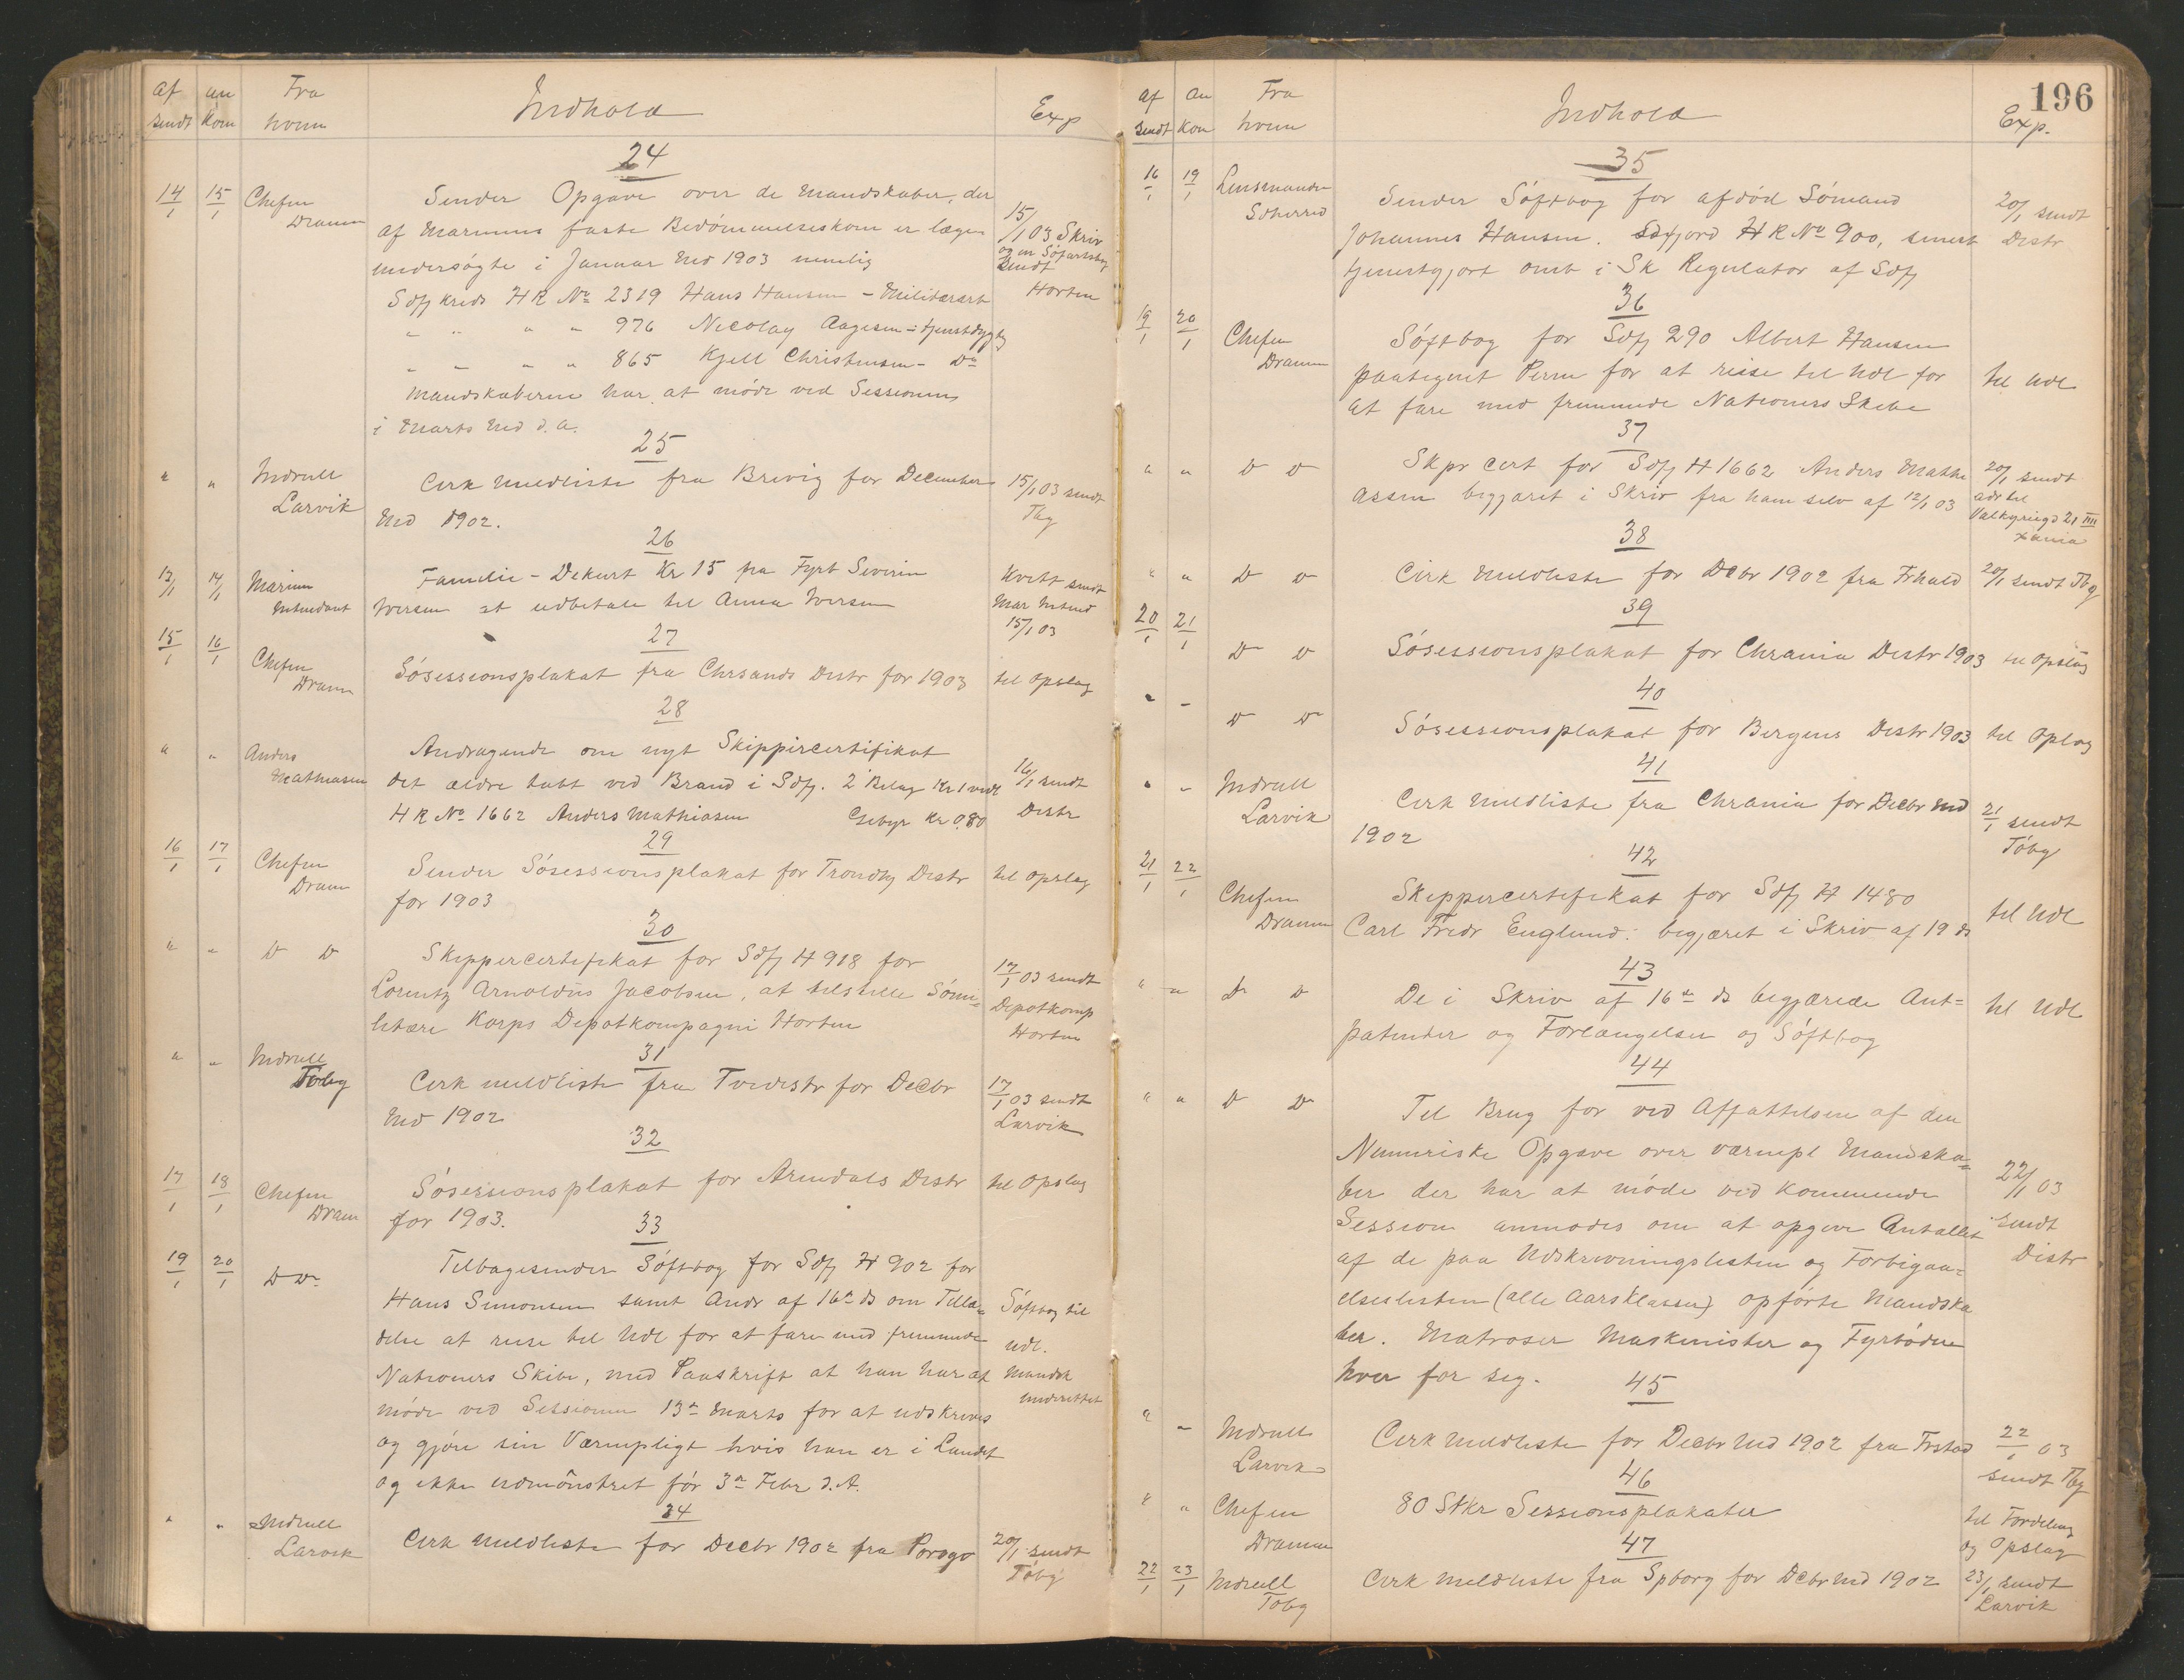 af an Fra Indhold Exp
sendt kom hvem
24
14/1 15/1 Chefen Sender Opgave over de Mandskaber, der
Dramm af Marinens faste Bedømmelseskom er læge= 15/1 03 Skriv
undersøgte i Januar Md 1903 nemlig og en Søfartsbog sendt
Sdfj Kreds HR No 2319 Hans Hansen - Militærarb Horten
" " " " 976 Nicolay Aagesen - tjenstdygtig
" " " " 865 Kjell Christensen - Do
Mandskaberne har at møde ved Sessionen
i Marts Md d.a.
25
" " Indrull Cirk Meldliste fra Brevig for December 15/1 03 sendt
Larvik Md 1902. Tbg
26
13/1 14/1 Marine Familie-Dekurt Kr 15 fra Fyrb Severin Kvitt sendt
Intendant Iversen at udbetale til Anna Iversen Mar Intend
15/1 03
15/1 16/1 27
Chefen Søsessionsplakat fra Chrsands Distr for 1903 til Opslag
Dramm
28
" " Anders Andragende om nyt Skippercertifikat
Mathiasen det ældre tabt ved Brand i Sdfj. 2 Bilag Kr 1 vedl 16/1 sendt
HR No 1662 Anders Mathiasen Gebyr Kr 0.80 Distr
29
16/1 17/1 Chefen Sender Søsessionsplakat for Trondhj Distr til Opslag
Dram for 1903
30
" " D D Skippercertifikat for Sdfj H 918 for 17/1 03 sendt
Lorentz Arnoldus Jacobsen, at tilstille Sømi= Depotkomp
litære Korps Depotkompagni Horten Horten
31
" " Indrull Cirk meldliste fra Tvedestr for Decbr 17/1 03 sendt
Tøbg Md 1902 Larvik
32
17/1 18/1 Chefen Søsessionsplakat for Arendals Distr til Opslag
Dram for 1903.
33
19/1 20/1 D Do Tilbagesender Søftbog for Sdfj H 902 for
Hans Simonsen samt Andr af 16de ds om Tilla= Søftbog til
delse at reise til Udl for at fare med fremmede udl.
Nationers Skibe, med Paaskrift at han har at Mandsk
møde ved Sessionen 13de Marts for at udskrives underrettet
og gjøre sin Værnepligt hvis han er i Landet
og ikke udmønstret før 3de Febr d.A.
34
" " Indrull Cirk Meldliste for Decbr 1902 fra Porsgr 20/1 sendt
Larvik Tøbg
196
af an Fra Indhold Exp.
sendt kom hvem
35
16/1 19/1 Lensmanden Sender Søftbog for afdød Sømand 20/1 sendt
Sdherred Johannes Hansen. Sdfjord HR No 900, senest Distr
tjenestgjort omb i Sk Regulator af Sdfj
36
19/1 20/1 Chefen Søftbog for Sdfj 290 Albert Hansen
Dramm paategnet Perm for at reise til Udl for til Udl
at fare med fremmede Nationers Skibe
37
" " D D Skpr cert for Sdfj H 1662 Anders Mathi 20/1 sendt
assen begjæret i Skriv fra ham selv af 12/1 03 adr til
Valkyriegd 21 IIII
Xania
38
" " D D Cirk Meldliste for Dcbr 1902 fra Frhald 20/1 sendt Tbg
39
20/1 21/1 D D Søsessionsplakat for Chrania Distr 1903 til Opslag
40
" " D Do Søsessionsplakat for Bergens Distr 1903 til Oplag
41
" " Indrull Cirk Meldliste fra Chrania for Decbr Md 21/1 sendt
Larvik 1902 Tøbg
42
21/1 22/1 Chefen Skippercertifikat for Sdfj H 1480
Dramm Carl Fredr Englund: begjæret i Skriv af 19 ds til Udl
43
" " D D De i Skriv af 16de ds begjærede Ant= til Udl
patenter og Forlængelser og Søftbog
44
" " D Do Til Brug for ved Affattelsen af den
Numeriske Opgave over værnepl Mandska=
ber der har at møde ved kommende 22/1 03
Session anmodes om at opgive Antallet sendt
af de paa Udskrivningslisten og Forbigaa= Distr
elseslisten (alle Aarsklasser) opførte Mandska
ber. Matroser Maskinister og Fyrbødere
hver for sig.
45
" " Indrull Cirk Meldliste for Decbr Md 1902 fra Frstad 22/1 03
Larvik sendt Tbg
46
" " Chefen 80 Stkr Sessionsplakater til Fordeling
Dramm og Opslag
47
22/1 23/1 Indrull Cirk Meldliste fra Spborg for Dcbr Md 1902 23/1 sendt
Tøbg Larvik